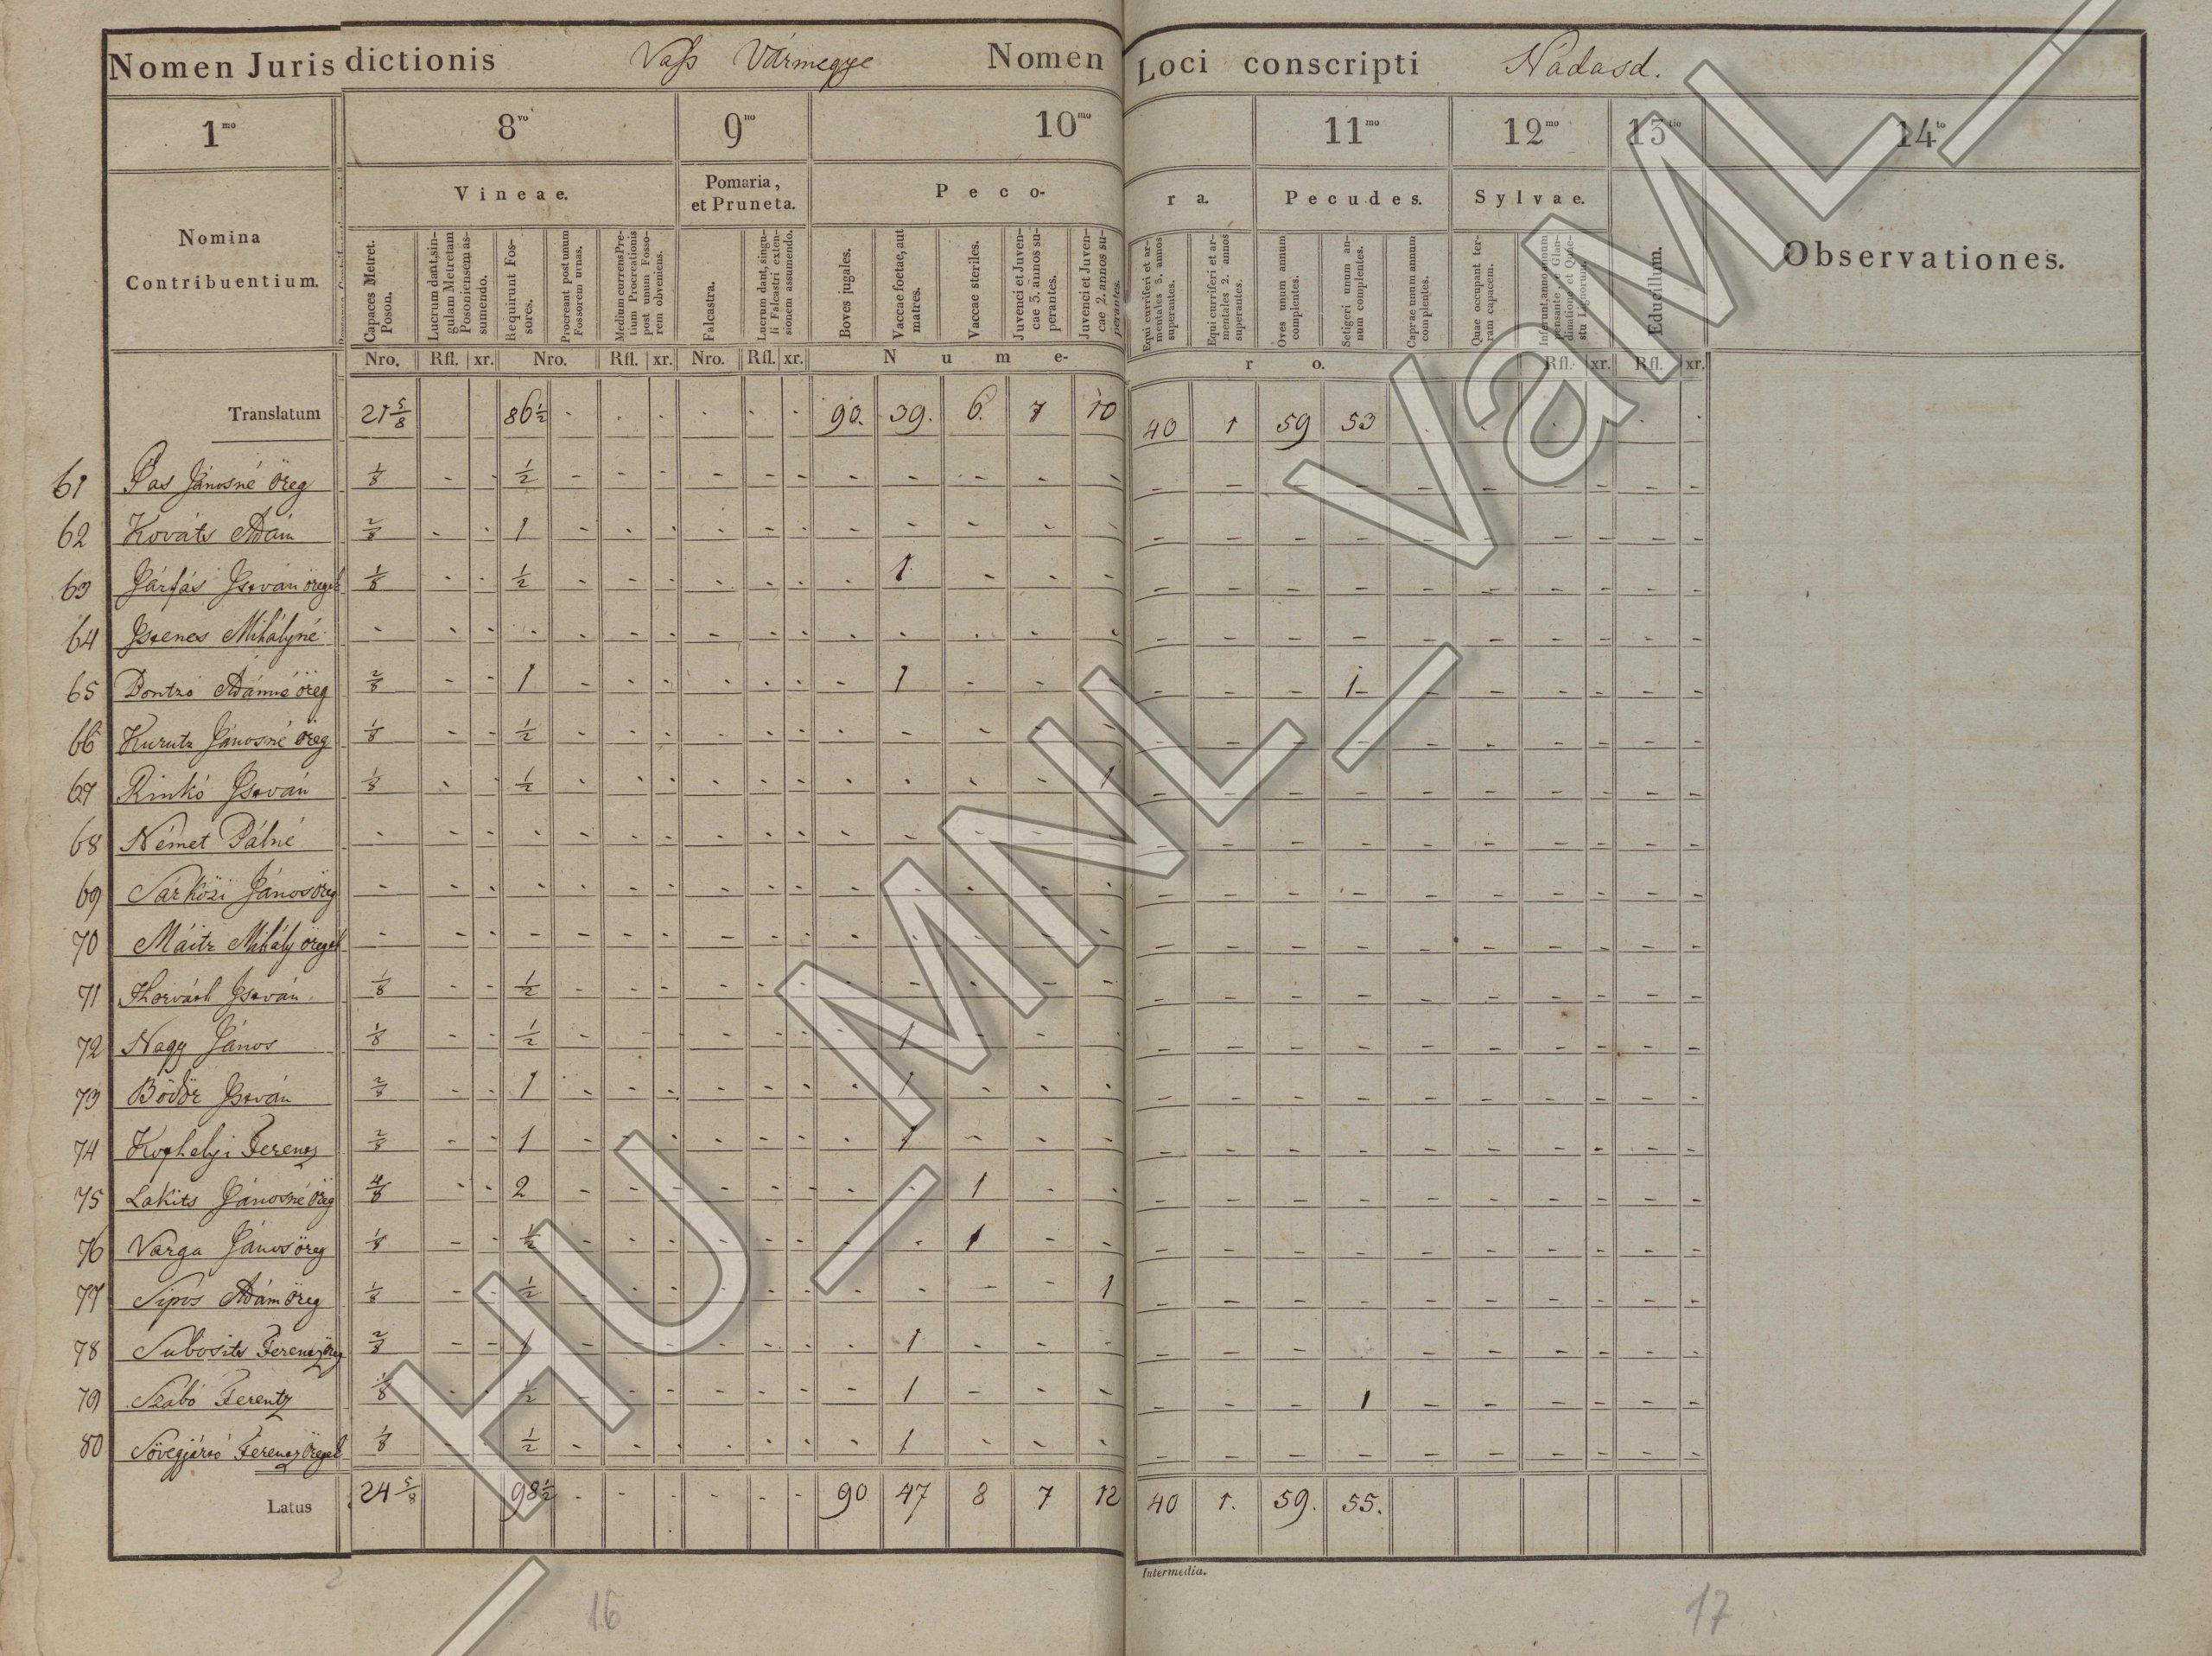 Nomen Jurisdictionis Vass Vármegye Nomen Loci conscripti Nádasd.
1mo 8vo 9no 10mo 11mo 12mo 13tio 14to
Nomina Contribuentium. Vineae. Pomaria, et Pruneta. Pecora. Pecudes. Sylvae. Educillum. Observationes.
Capaces Metret. Poson.
Lucrum dant, singulam Metretam Posoniensem assumendo.
Requirunt Fossores.
Procreant post unum Fossorem urnas.
Medium currens Pretium Procreationis post unum Fossorem obveniens.
Falcastra.
Lucrum dant, singuli Falcastri extensionem assumendo.
Boves jugales.
Vaccae foetae, aut matres.
Vaccae steriles.
Juvenci et Juvencae 3. annos superantes.
Juvenci et Juvencae 2. annos superantes.
Equi curriferi et armentales 3. annos superantes.
Equi curriferi et armentales 2. annos superantes.
Oves unum annum complentes.
Setigeri unum annum complentes.
Caprae unum annum complentes.
Quae occupant terram capacem.
Nro. Rfl. xr. Nro. Rfl. xr. Nro. Rfl. xr. Nume-ro. Rfl. xr. Rfl. xr.
Translatum 21 5/8 86 1/2 - - - - - - 90. 39. 6. 7 10 40 1 59 53
61 Pas Jánosné öreg 1/8 - - 1/2 - - - - - - - - - - -
62 Kováts Ádám 2/8 - - 1 - - - - - - - - - - -
63 István 1/8 - - 1/2 - - - - - - - 1 - - -
64 Mihályné - - - - - - - - - - - - - - -
65 Dontzó Ádámné öreg 2/8 - - 1 - - - - - - - 1 - - - - - - 1 -
66 Kurutz Jánosné öreg 1/8 - - 1/2 - - - - - - - - - - -
67 Rinkó István 1/8 - - 1/2 - - - - - - - - - - 1
68 Német Pálné - - - - - - - - - - - - - - -
69 Sárközi János öreg - - - - - - - - - - - - - - -
70 Máitz Mihály - - - - - - - - - - - - - - -
71 Horváth István 1/8 - - 1/2 - - - - - - - - - - -
72 Nagy János 1/8 - - 1/2 - - - - - - - 1 - - -
73 Bödör István 2/8 - - 1 - - - - - - - 1 - - -
74 Ferencz 2/8 - - 1 - - - - - - - 1 - - -
75 Lakits Jánosné öreg 4/8 - - 2 - - - - - - - - 1 - -
76 Varga János öreg 1/8 - - 1/2 - - - - - - - - 1 - -
77 Sipos Ádám öreg 1/8 - - 1/2 - - - - - - - - - - 1
78 Subosits Ferencz öreg 2/8 - - 1 - - - - - - - 1 - - -
79 Szabó Ferentz 1/8 - - 1/2 - - - - - - - 1 - - - - - - 1 -
80 Ferencz 1/8 - - 1/2 - - - - - - - 1 - - -
Latus 24 5/8 98 1/2 - - - - - - 90 47 8 7 12 40 1. 59. 55.
Intermedia.
16 17
HU_MNL_VaML_